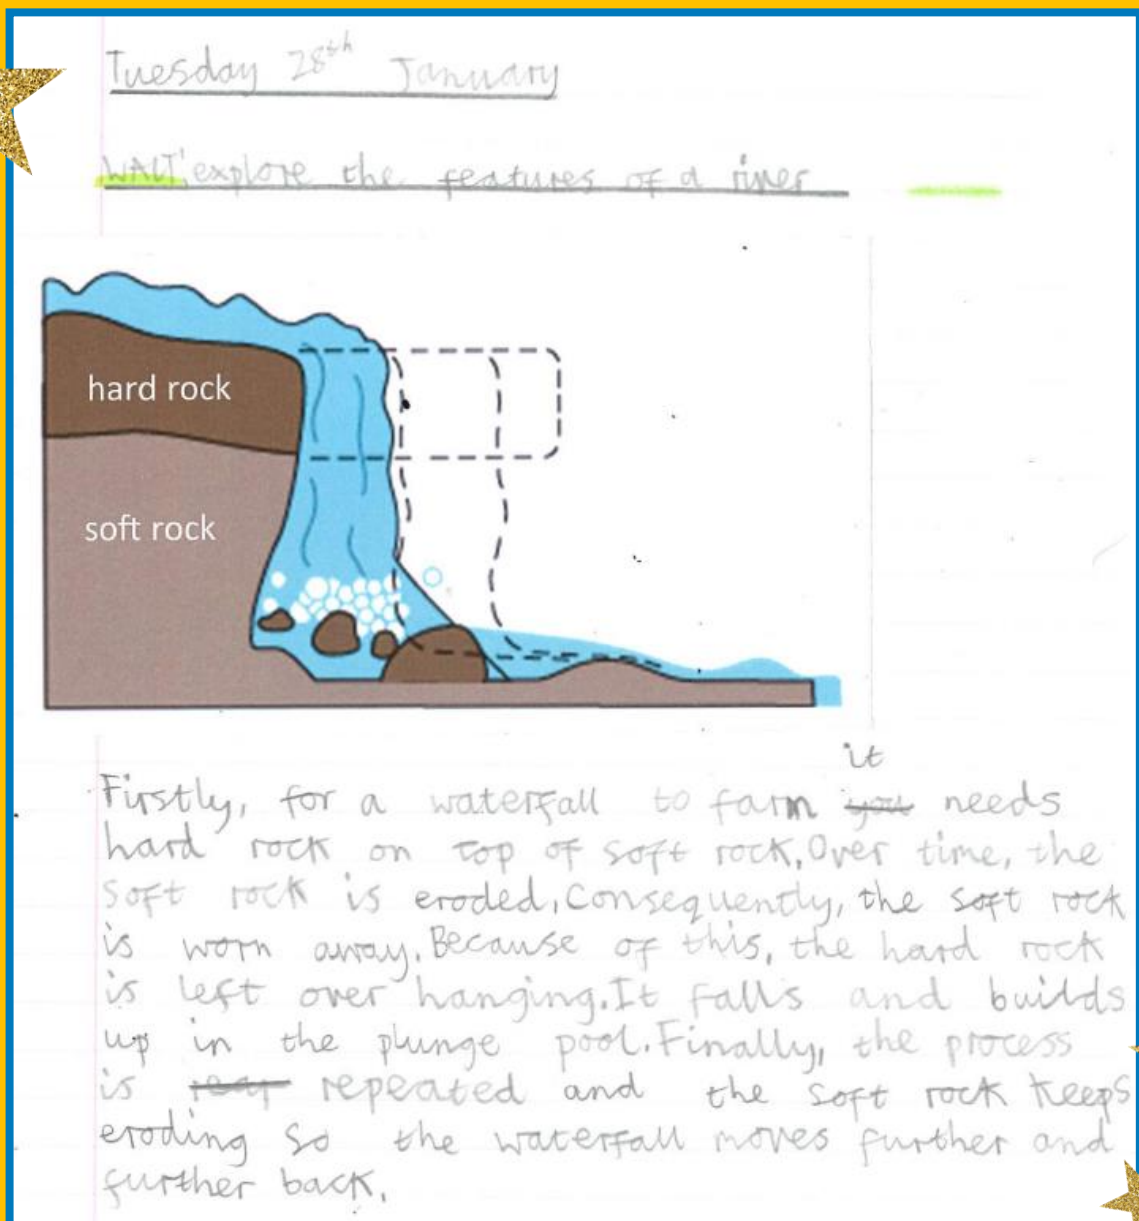 Tuesday 28th January
WALT: explore the features of a river
hard rock
soft rock
it
Firstly, for a waterfall to farm you needs
hard rock on top of soft rock. Over time, the
soft rock is eroded. Consequently, the soft rock
is worn away. Because of this, the hard rock
is left over hanging. It falls and builds
up in the plunge pool. Finally, the process
is reap repeated and the soft rock keeps
eroding so the waterfall moves further and
further back.